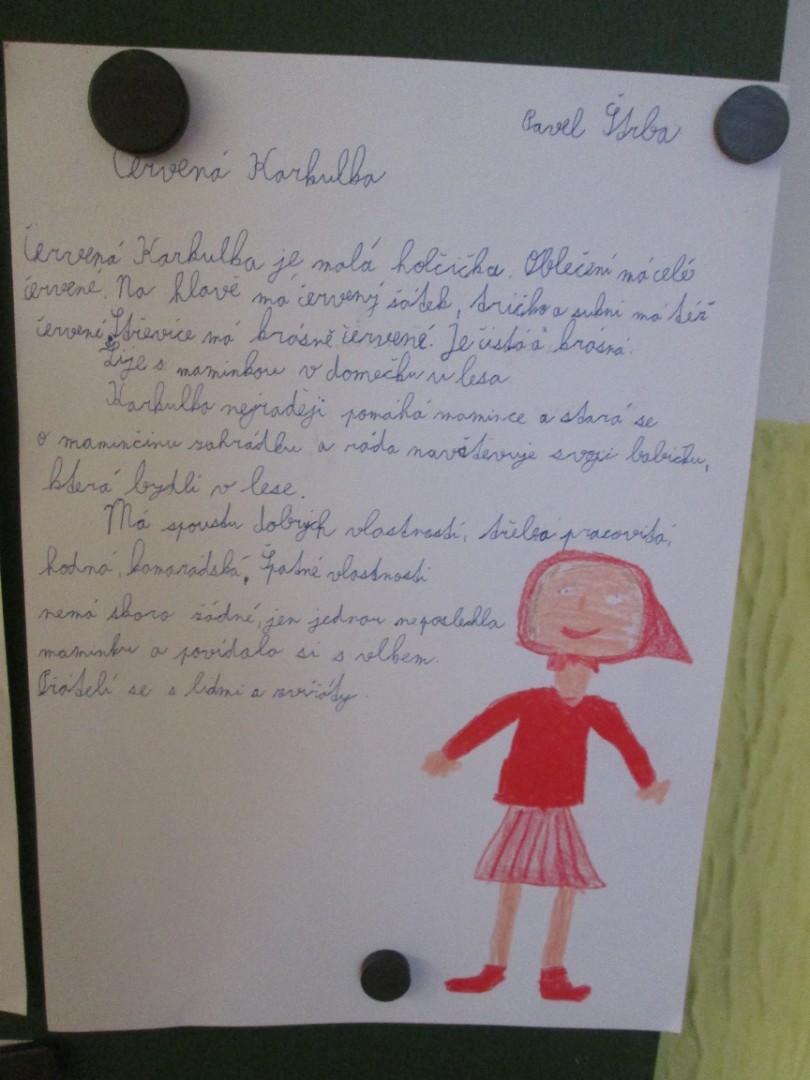 Pavel Štrba
Červená Karkulka
Červená Karkulka je malá holčička. Oblečení má celé
červené. Na hlavě má červený šátek, tričko a sukni má též
červené. Střevíce má krásně červené. Je čistá a krásná.
Žije s maminkou v domečku u lesa.
Karkulka nejraději pomáhá mamince a stará se
o maminčinu zahrádku a ráda navštěvuje svoji babičku,
která bydlí v lese.
Má spoustu dobrých vlastností, třeba pracovitá,
hodná, kamarádská. Špatné vlastnosti
nemá skoro žádné, jen jednou neposlechla
maminku a povídala si s vlkem.
Přátelí se s lidmi a zvířáty.